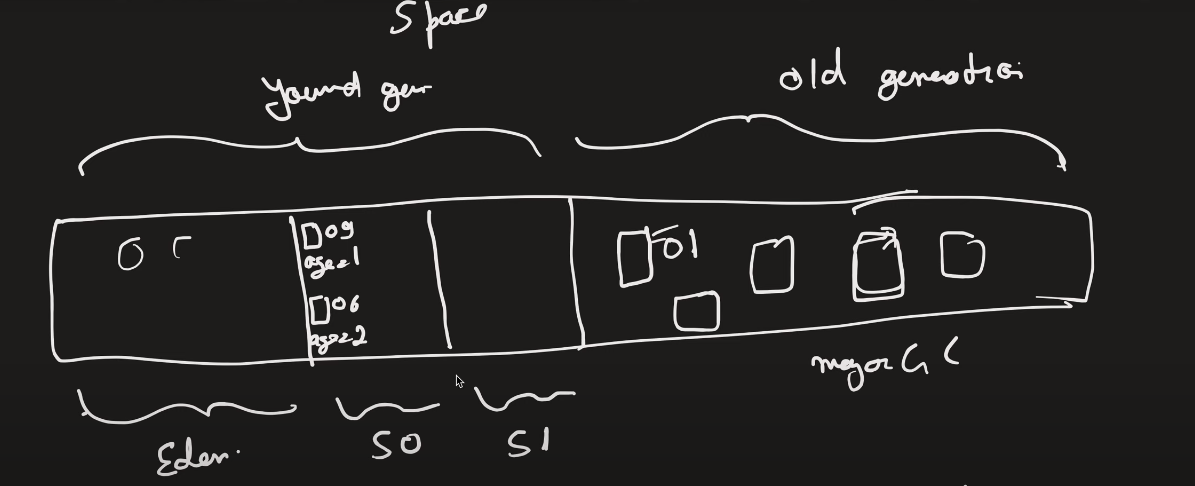 Space
Yound gen
old generatioi
O C
O9
age=1
O6
age=2
O1
major GC
Eden.
S0 S1